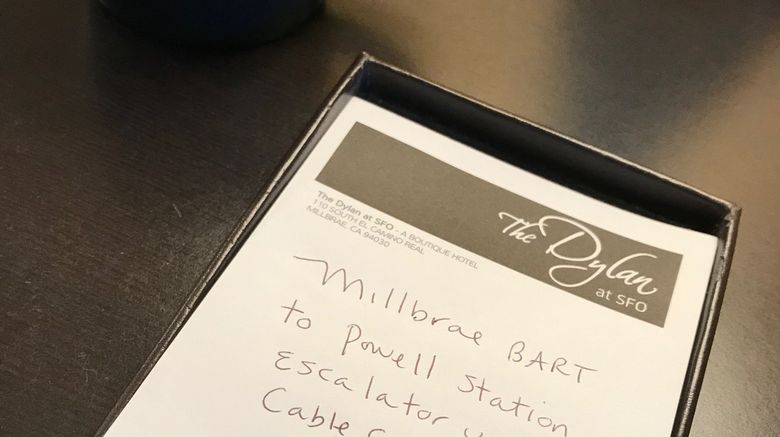 The Dylan
at SFO
The Dylan at SFO - A BOUTIQUE HOTEL
110 SOUTH EL CAMINO REAL
MILLBRAE, CA 94030
Millbrae BART
to Powell Station
Escalator
Cable